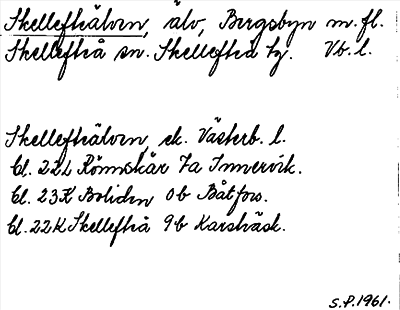 Skellefteälven, älv, Bergsbyn m.fl.
Skellefteå sn. Skellefteå tg. Vb. l.
Skellefteälven, ek. Västerb. l.
Bl. 22L Rönnskär 7a Innervik.
Bl. 23K Boliden 0b Båtfors.
Bl. 22K Skellefteå 9b Karsträsk.
S.P. 1961.